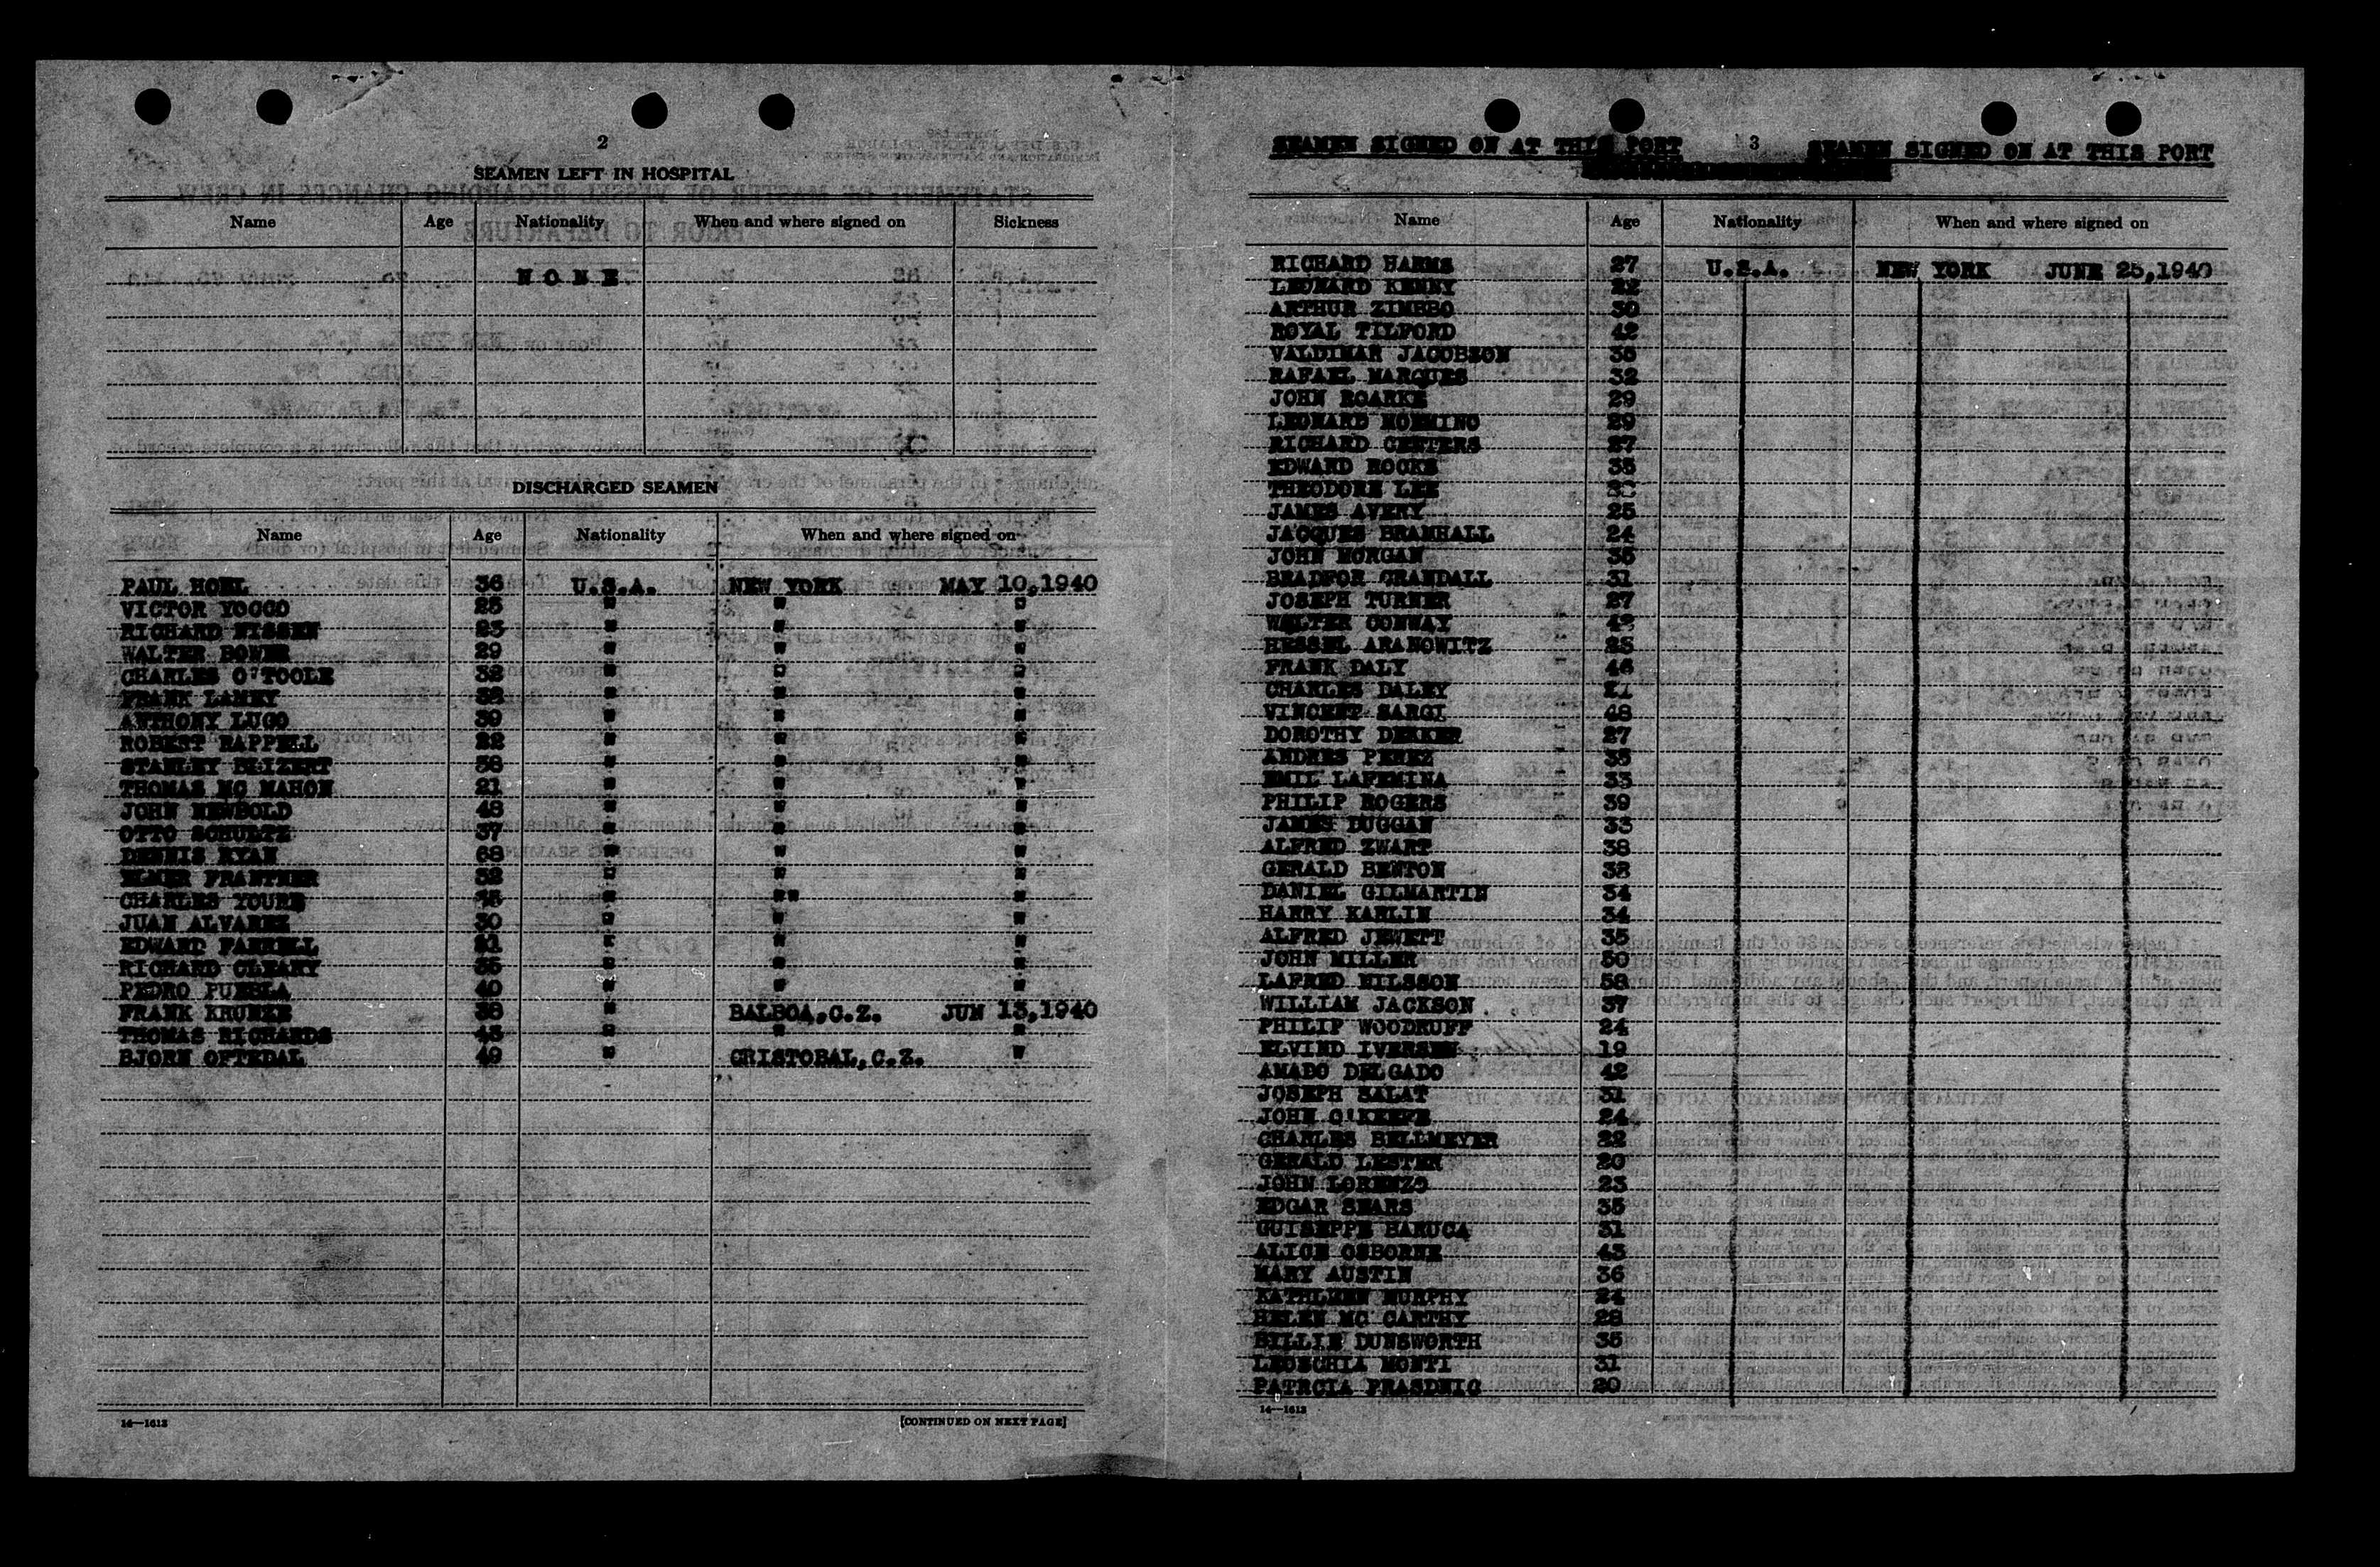 2
SEAMEN LEFT IN HOSPITAL
Name Age Nationality When and where signed on Sickness
NONE
DISCHARGED SEAMEN
Name Age Nationality When and where signed on
PAUL HOEL 36 U.S.A. NEW YORK MAY 10,1940
VICTOR YOCCO 25 " " "
RICHARD NISSEN 23 " " "
WALTER BOWER 29 " " "
CHARLES O'TOOLE 32 " " "
FRANK LAMEY " " "
ANTHONY LUGO 39 " " "
ROBERT RAPPELL 22 " " "
STANLEY 38 " " "
THOMAS MC MAHON 21 " " "
JOHN NEWBOLD 48 " " "
OTTO SCHULTZ 37 " " "
DENNIS RYAN 68 " " "
ELMER " " "
CHARLES " "" "
JUAN ALVAREZ 30 " " "
EDWARD FARRELL " " "
RICHARD CLEARY 35 " " "
PEDRO PUEBLA 40 " " "
FRANK KRUNZE 38 " BALBOA,C.Z. JUN 13,1940
THOMAS RICHARDS 43 " " "
BJORN OFTEDAL 49 " CRISTOBAL,C.Z. "
14—1613
[CONTINUED ON NEXT PAGE]
SEAMEN SIGNED ON AT THIS PORT 3 SEAMEN SIGNED ON AT THIS PORT
Name Age Nationality When and where signed on
RICHARD HARMS 27 U.S.A. NEW YORK JUNE 25,1940
LEONARD KENNY 22
ARTHUR ZIMBBO 30
ROYAL TILFORD 42
VALDIMAR JACOBSON 35
RAFAEL MARQUES 32
JOHN ROARKE 29
LEONARD 29
RICHARD CENTERS 27
EDWARD ROCKE 35
THEODORE LEE
JAMES AVERY 25
JACQUES BRAMHALL 24
JOHN MORGAN 35
BRADFOR CRANDALL 31
JOSEPH TURNER 27
WALTER CONWAY
HESSEL ARANOWITZ 25
FRANK DALY 46
CHARLES DALEY
VINCENT SARGI 48
DOROTHY DEKKER 27
ANDRES PEREZ 35
EMIL LAFEMINA 33
PHILIP ROGERS 39
JAMES DUGGAN 33
ALFRED ZWART 38
GERALD BENTON 38
DANIEL GILMARTIN 34
HARRY KARLIN 34
ALFRED JEWETT 35
JOHN MILLER 50
LAFRED NILSSON 58
WILLIAM JACKSON 37
PHILIP WOODRUFF 24
ELVIND IVERSEN 19
AMADO DELGADO 42
JOSEPH SALAT 31
JOHN O'KEEFE 24
CHARLES BELLMEYER 22
GERALD LESTER 20
JOHN LORENZO 23
EDGAR SEARS 35
GUISEPPE BARUCA 31
ALICE OSBORNE 43
MARY AUSTIN 36
KATHLEEN MURPHY 24
HELEN MC CARTHY 28
BILLIE DUNSWORTH 35
LEOSCHIA MONTI 31
PATRCIA PRASDNIG 20
14—1613